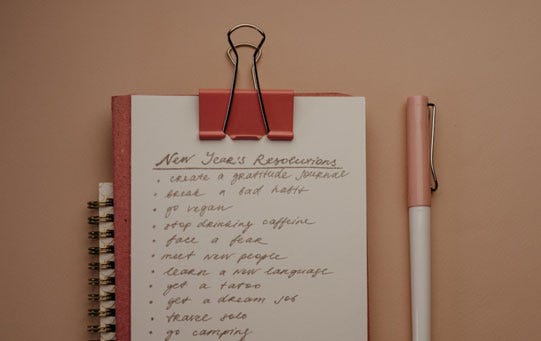 New Year's Resolutions
• create a gratitude journal
• break a bad habits
• go vegan
• stop drinking caffeine
• face a fear
• meet new people
• learn a new language
• get a tatoo
• get a dream job
• travel solo
• go camping